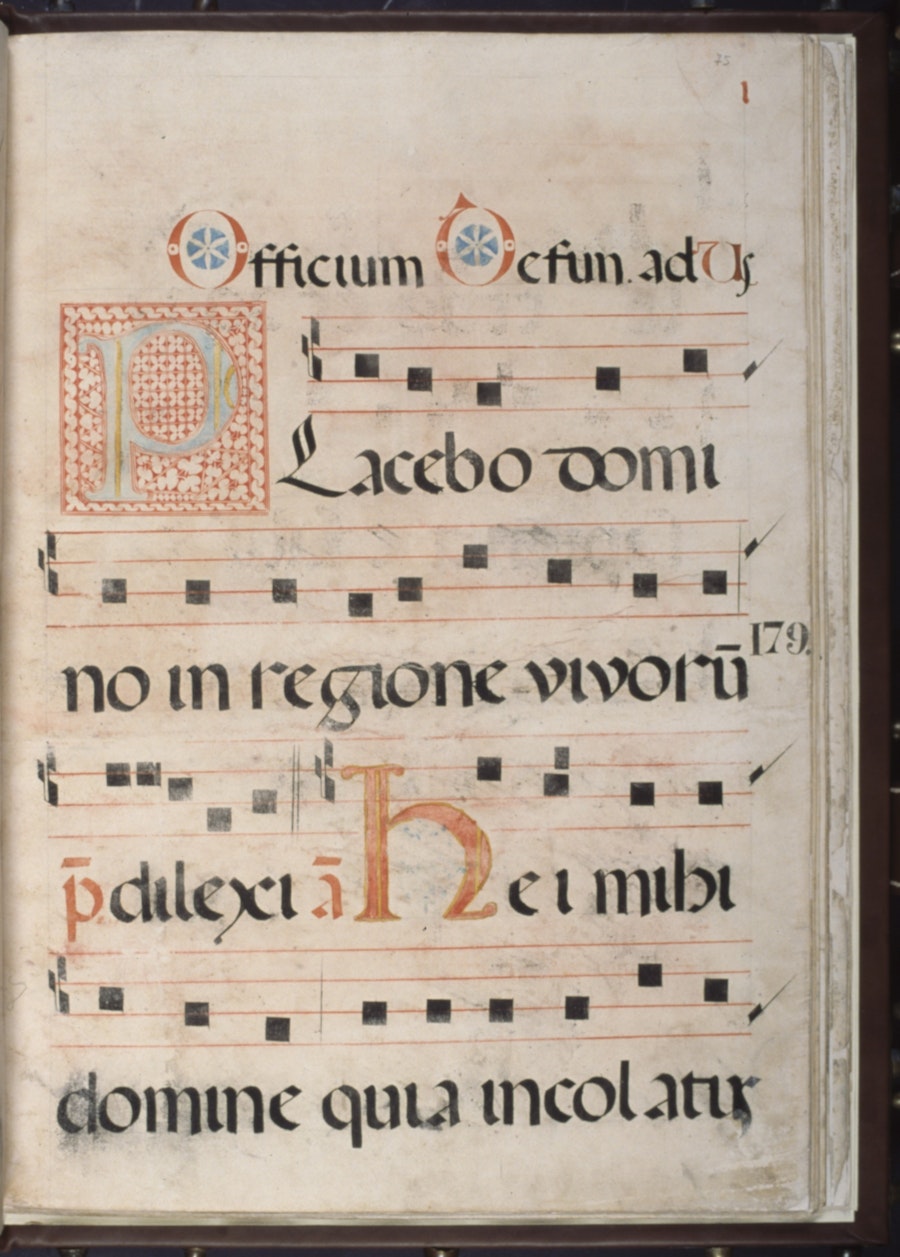 75
1
Officium Defun. ad Us
PLacebo domi
no in regione vivorū
179.
p̄. dilexi ā Hei mihi
domine quia incolatus